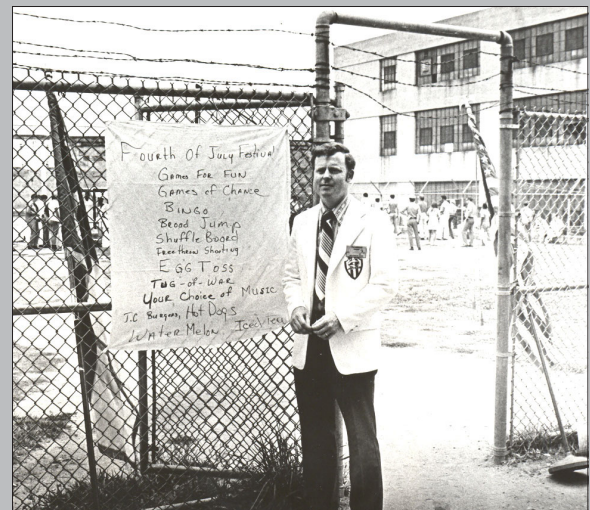 Fourth Of July Festival
Games For Fun
Games of Chance
Bingo
Broad Jump
Shuffle Board
Free throw Shooting
Egg Toss
Tug-of-War
Your Choice of Music
J.C Burgers, Hot Dogs
Water Melon Iced